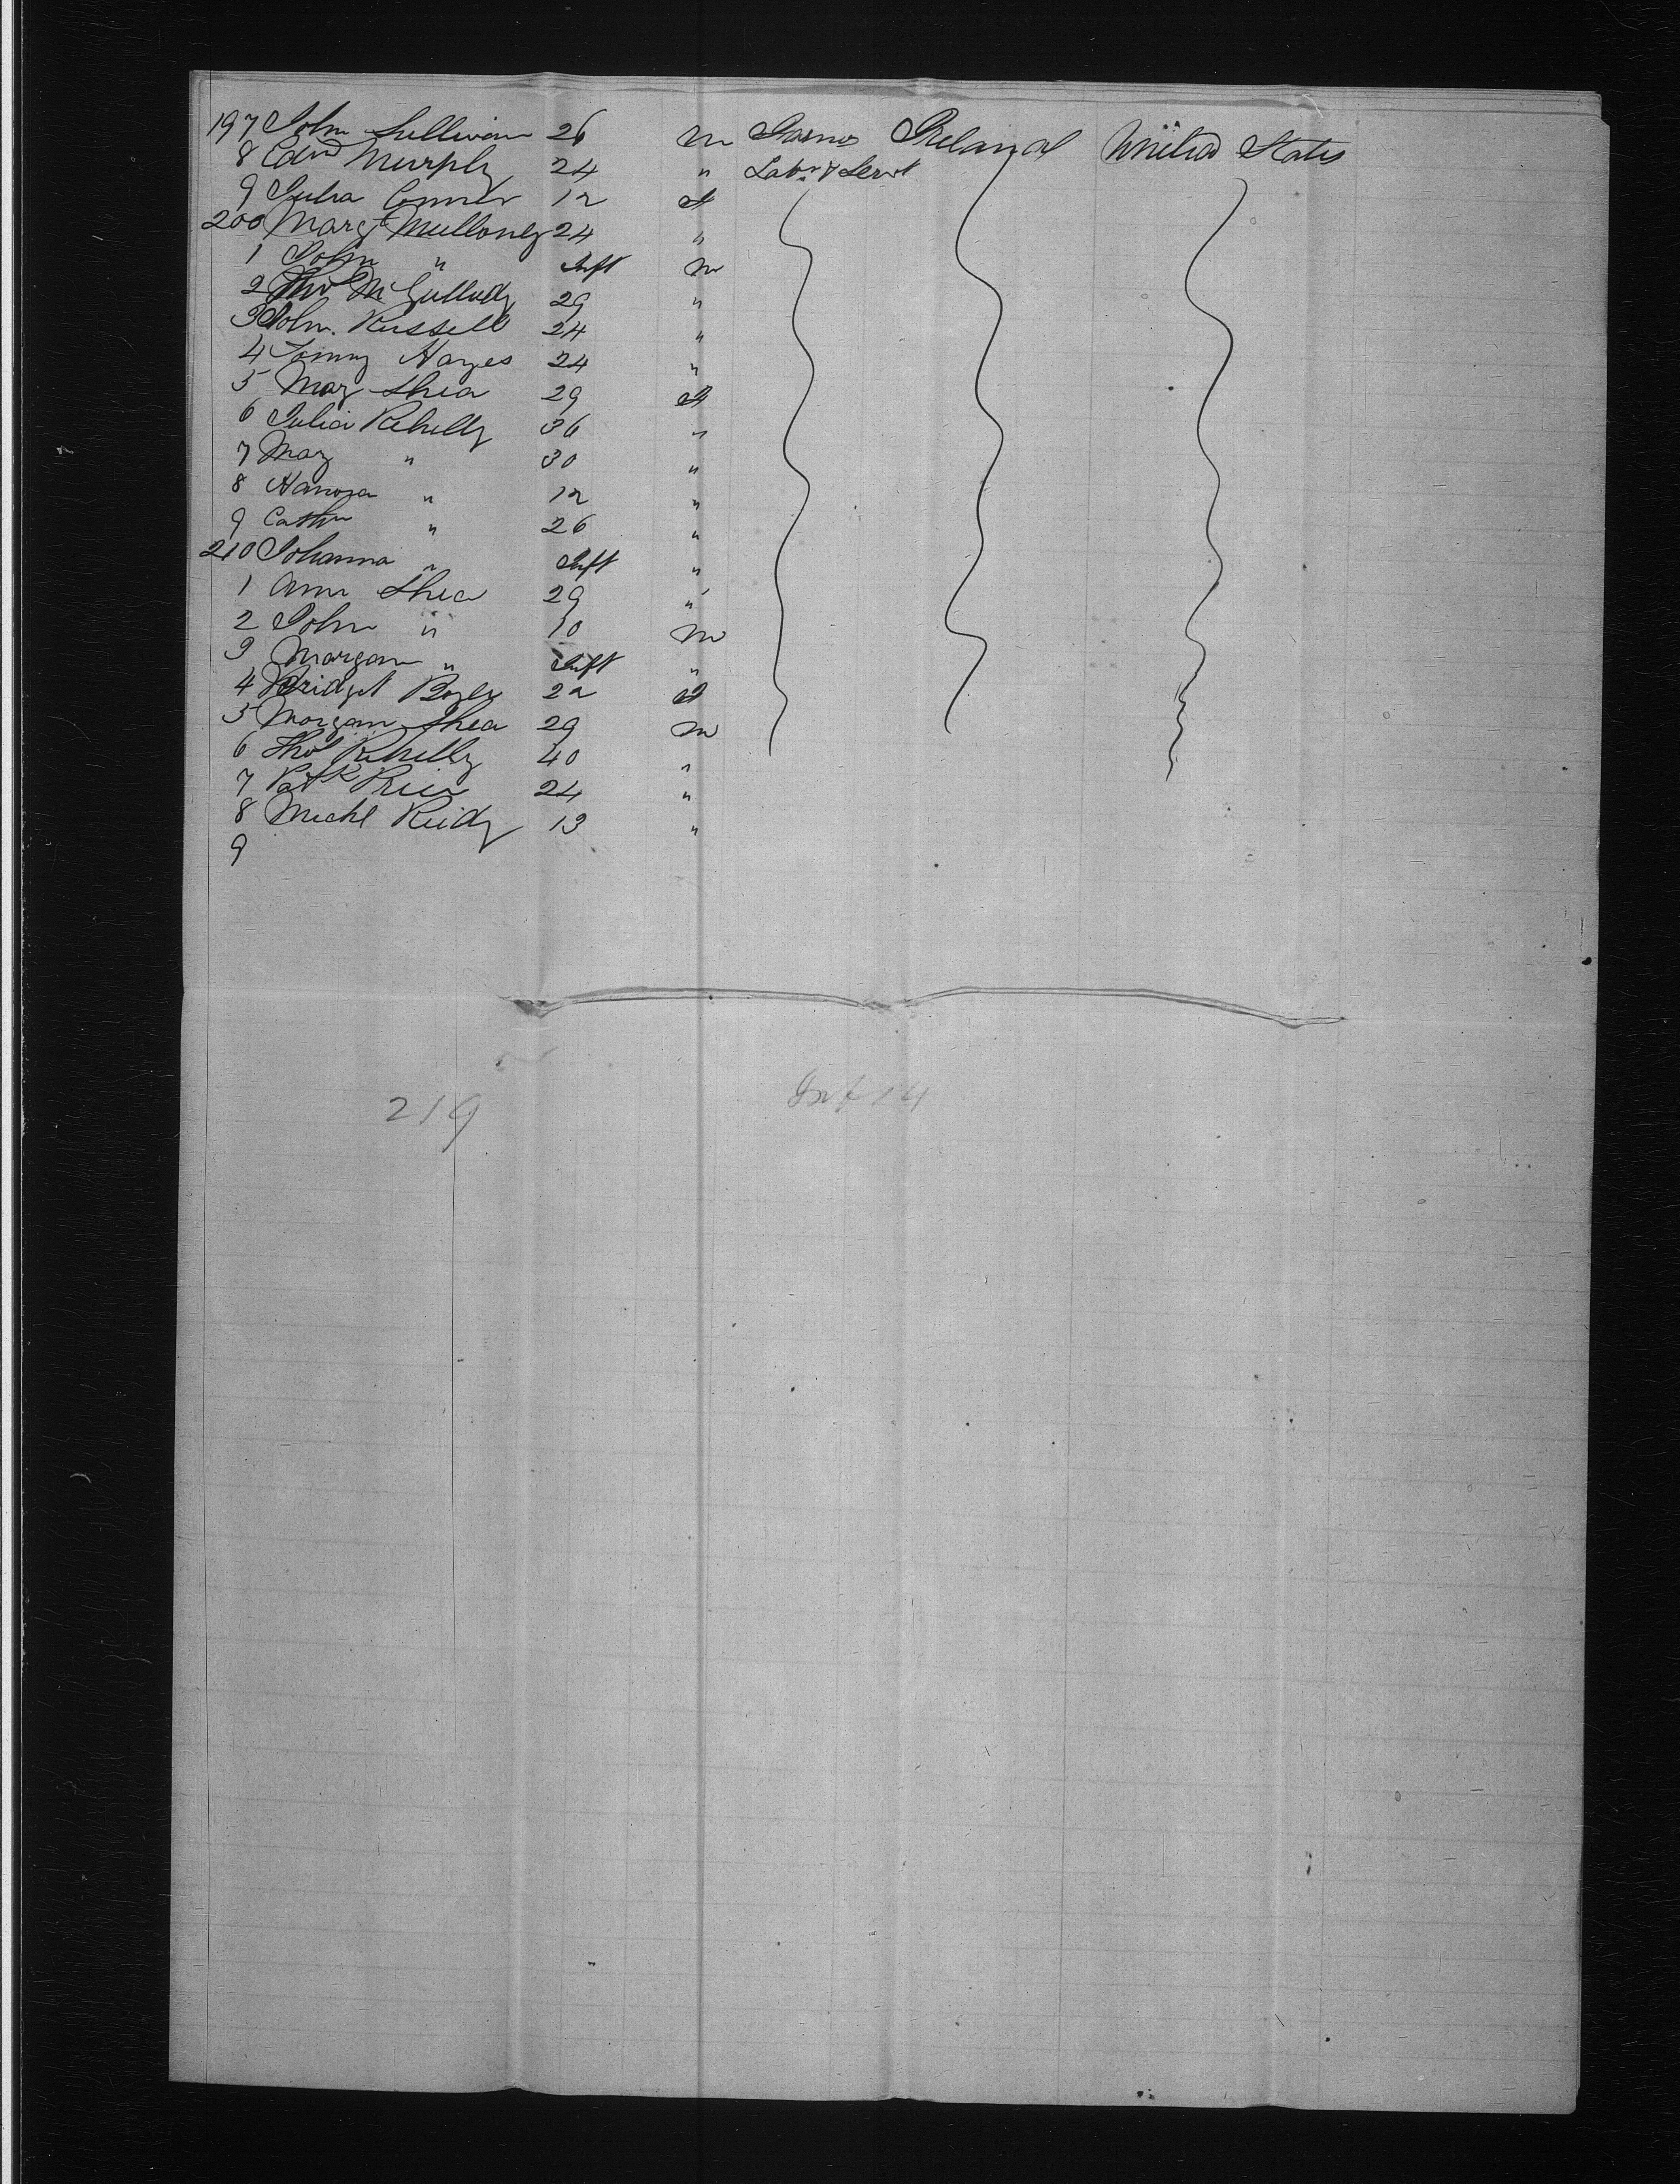 197 John Sullivan 26 m Farmr Ireland United States
8 Edwd Murphy 24 " Labr & Servt
9 Julia Conner 12 f
200 Margt Mulloney 24 "
1 John " Inft m
2 Thos 29 "
3 John Russell 24 "
4 Hayes 24 "
5 Mary Shea 29 f
6 Julia Rehilly 36 "
7 Mary " 30 "
8 Hanora " 12 "
9 Cathn " 26 "
210 Johanna " Inft "
1 Ann Shea 29 "
2 John " 10 m
3 Morgan " Inft "
4 Bridget 22 f
5 Morgan Shea 29 m
6 Thos Rehilly 40 "
7 Patk 24 "
8 Michl Reidy 13 "
9
219 Inft 14